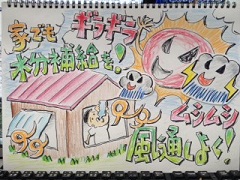 家でも
水分補給を!
ギラギラ
ムシムシ
風通しよく!